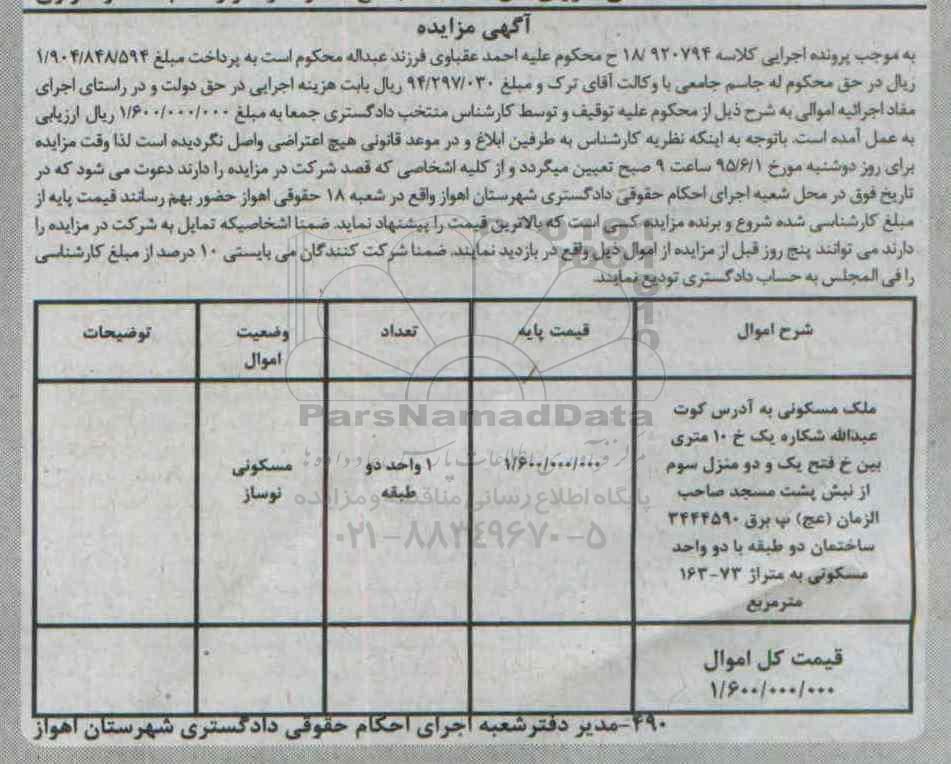 آگهی مزایده
به موجب پرونده اجرایی کلاسه ۹۲۰۷۹۴ /۱۸ ح محکوم علیه احمد عقباوی فرزند عبداله محکوم است به پرداخت مبلغ ۱/۹۰۴/۸۴۸/۵۹۴
ریال در حق محکوم له جاسم جامعی با وکالت آقای ترک و مبلغ ۹۴/۲۹۷/۰۳۰ ریال بابت هزینه اجرایی در حق دولت و در راستای اجرای
مفاد اجرائیه اموالی به شرح ذیل از محکوم علیه توقیف و توسط کارشناس منتخب دادگستری جمعا به مبلغ ۱/۶۰۰/۰۰۰/۰۰۰ ریال ارزیابی
به عمل آمده است. باتوجه به اینکه نظریه کارشناس به طرفین ابلاغ و در موعد قانونی هیچ اعتراضی واصل نگردیده است لذا وقت مزایده
برای روز دوشنبه مورخ ۹۵/۶/۱ ساعت ۹ صبح تعیین میگردد و از کلیه اشخاصی که قصد شرکت در مزایده را دارند دعوت می شود که در
تاریخ فوق در محل شعبه اجرای احکام حقوقی دادگستری شهرستان اهواز واقع در شعبه ۱۸ حقوقی اهواز حضور بهم رسانند قیمت پایه از
مبلغ کارشناسی شده شروع و برنده مزایده کسی است که بالاترین قیمت را پیشنهاد نماید. ضمنا اشخاصیکه تمایل به شرکت در مزایده را
دارند می توانند پنج روز قبل از مزایده از اموال ذیل واقع در بازدید نمایند. ضمنا شرکت کنندگان می بایستی ۱۰ درصد از مبلغ کارشناسی
را فی المجلس به حساب دادگستری تودیع نمایند.
شرح اموال
قیمت پایه
تعداد
وضعیت
اموال
توضیحات
ملک مسکونی به آدرس کوت
عبدالله شکاره یک خ ۱۰ متری
بین خ فتح یک و دو منزل سوم
از نبش پشت مسجد صاحب
الزمان (عج) پ برق ۳۴۴۴۵۹۰
ساختمان دو طبقه با دو واحد
مسکونی به متراژ ۷۳-۱۶۳
مترمربع
۱/۶۰۰/۰۰۰/۰۰۰
۱ واحد دو
طبقه
مسکونی
نوساز
قیمت کل اموال
۱/۶۰۰/۰۰۰/۰۰۰
۴۹۰-مدیر دفترشعبه اجرای احکام حقوقی دادگستری شهرستان اهواز
ParsNamadData
پایگاه اطلاع رسانی مناقصه و مزایده
۰۲۱-۸۸۳۴۹۶۷۰-۵